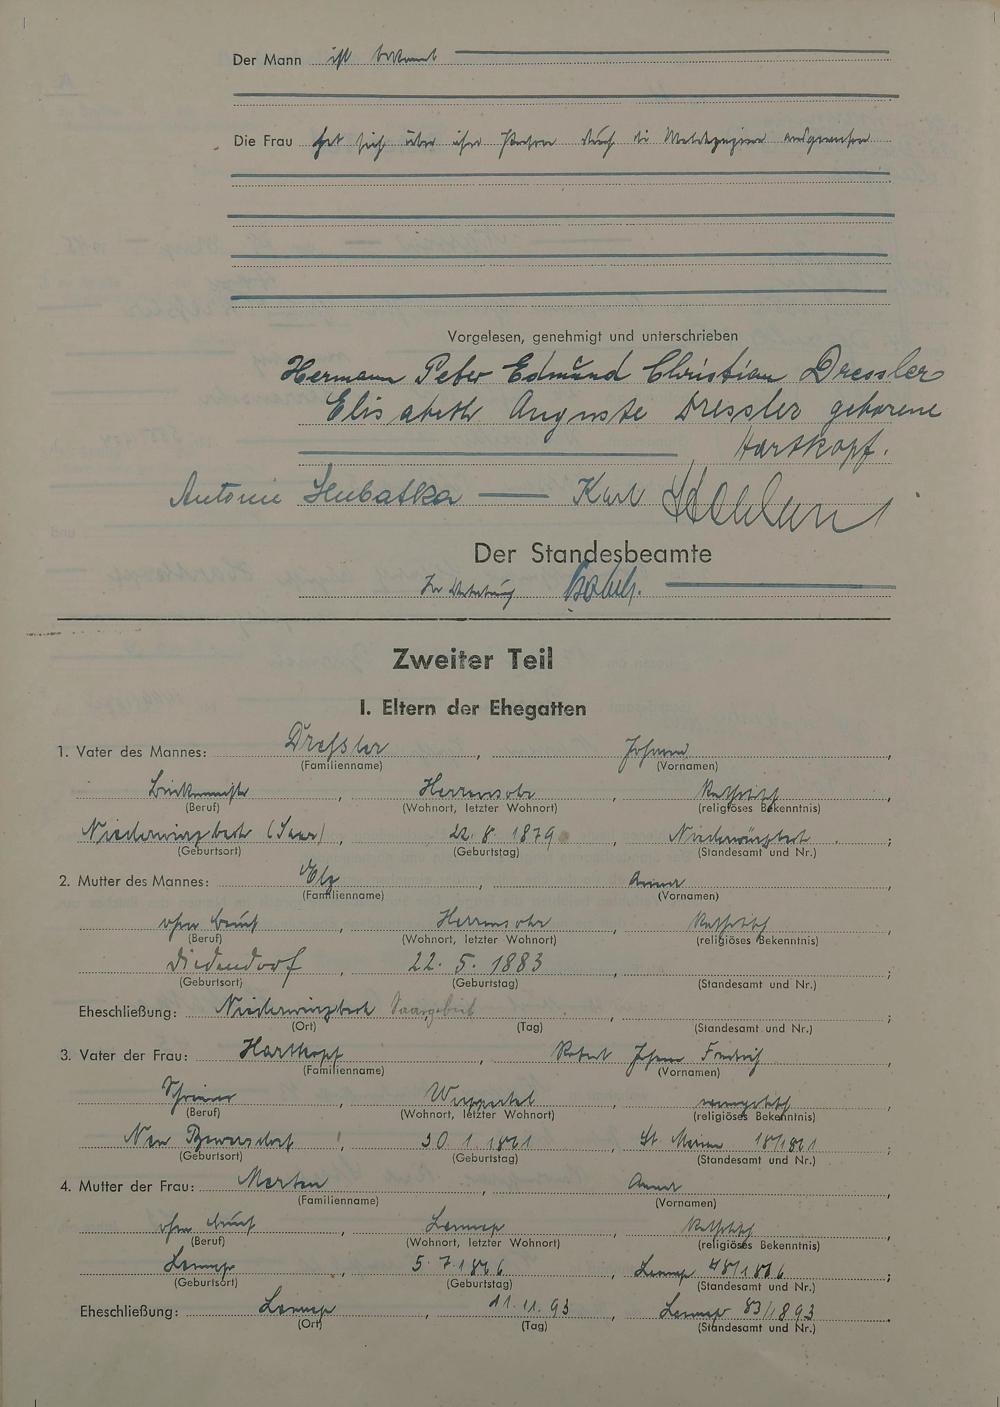 Der Mann ist bekannt
Die Frau hat sich über ihre Person durch die ausgewiesen
Vorgelesen, genehmigt und unterschrieben
Hermann Peter Edmund Christian Dressler
Elisabeth Auguste Dressler geborene
Hartkopf.
Antonie Hubatka — Karl
Der Standesbeamte
In Vertretung
Zweiter Teil
I. Eltern der Ehegatten
1. Vater des Mannes: Dressler, Johann,
(Familienname) (Vornamen)
, Herrensohr, katholisch,
(Beruf) (Wohnort, letzter Wohnort) (religiöses Bekenntnis)
Niederwürzbach (Saar), 22. 8. 1879, Niederwürzbach;
(Geburtsort) (Geburtstag) (Standesamt und Nr.)
2. Mutter des Mannes: Elz, Anna,
(Familienname) (Vornamen)
ohne Beruf, Herrensohr, katholisch,
(Beruf) (Wohnort, letzter Wohnort) (religiöses Bekenntnis)
Diedendorf, 22. 5. 1883, ;
(Geburtsort) (Geburtstag) (Standesamt und Nr.)
Eheschließung: Niederwürzbach Saargebiet, ;
(Ort) (Tag) (Standesamt und Nr.)
3. Vater der Frau: Hartkopf, Robert Johann Friedrich,
(Familienname) (Vornamen)
Schreiner, Wuppertal, evangelisch,
(Beruf) (Wohnort, letzter Wohnort) (religiöses Bekenntnis)
Neu, 30. 1. 1871, ;
(Geburtsort) (Geburtstag) (Standesamt und Nr.)
4. Mutter der Frau: Merten, Anna,
(Familienname) (Vornamen)
ohne Beruf, Lennep, katholisch,
(Beruf) (Wohnort, letzter Wohnort) (religiöses Bekenntnis)
Lennep, 5. 7. 1876, Lennep;
(Geburtsort) (Geburtstag) (Standesamt und Nr.)
Eheschließung: Lennep, 11. 11. 93, Lennep 83/1893
(Ort) (Tag) (Standesamt und Nr.)